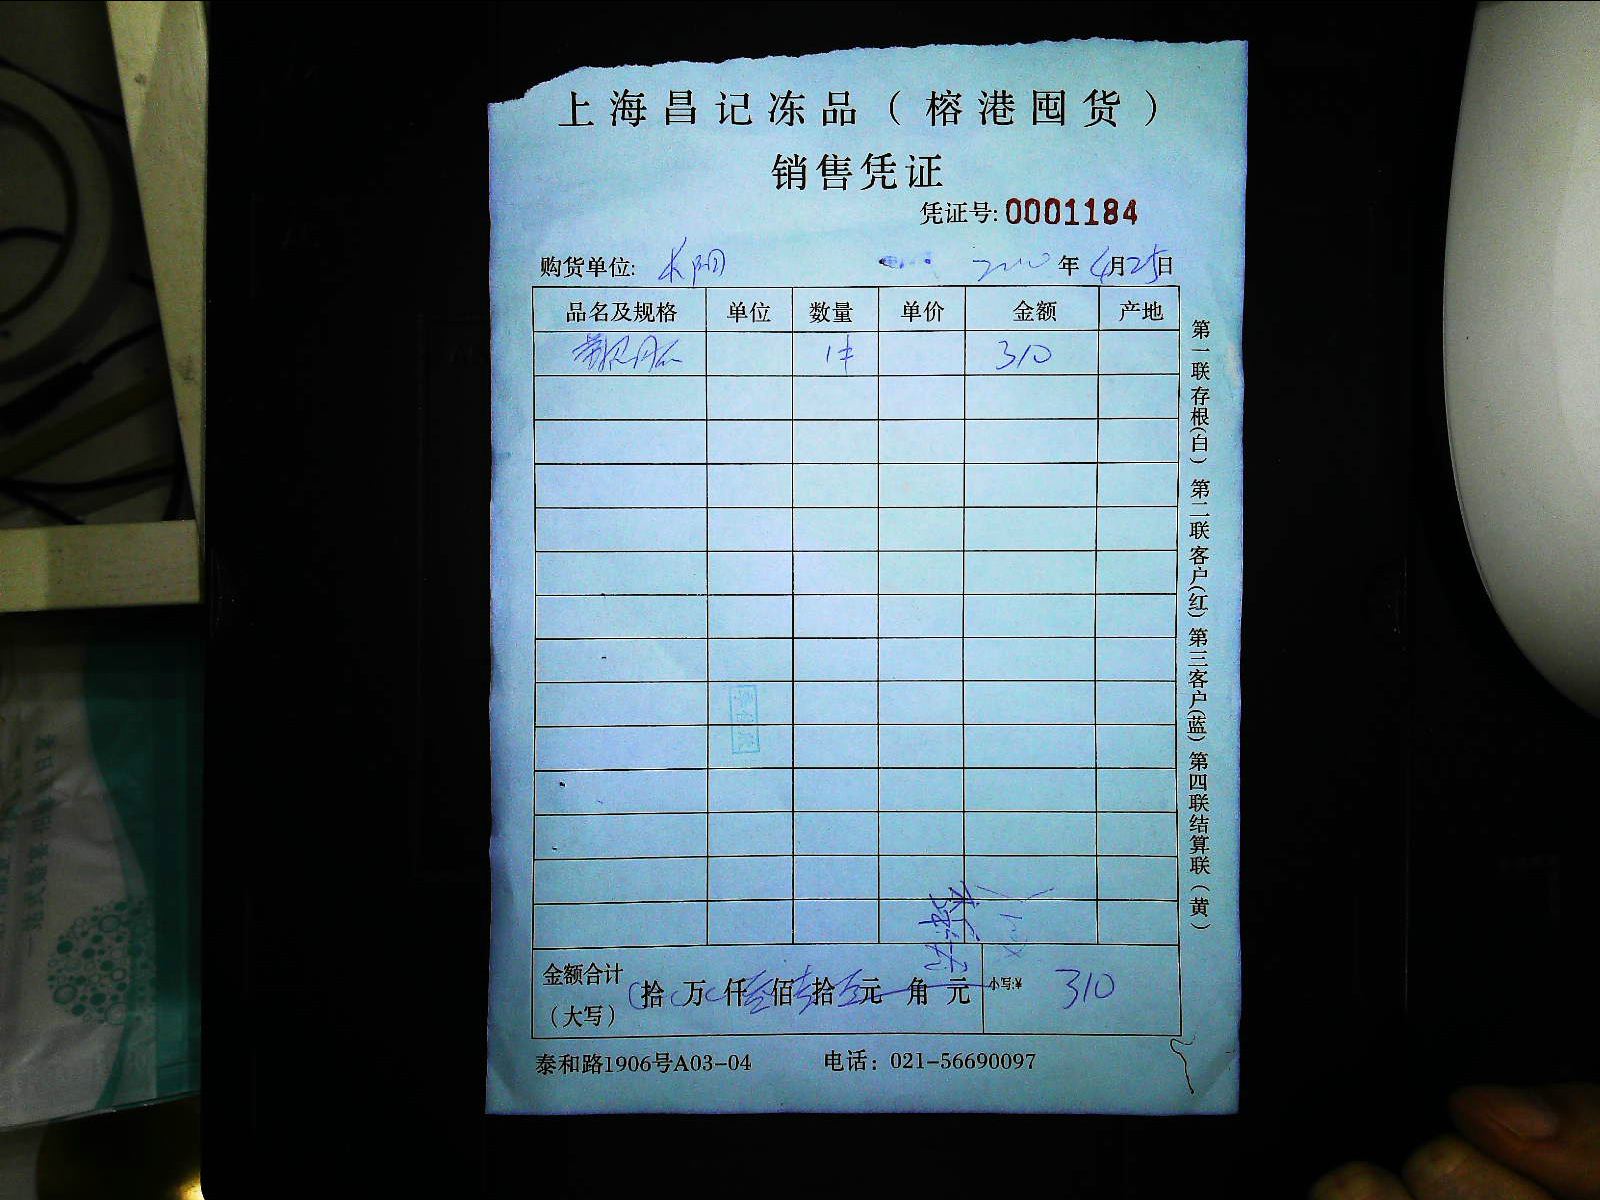 上海昌记冻品（榕港囤货）
销售凭证
凭证号: 0001184
购货单位: 年 4月25日
品名及规格 单位 数量 单价 金额 产地
1件 310
金额合计（大写） 拾 万 仟 叁佰 壹拾 元 角 元 小写:¥ 310
泰和路1906号A03-04 电话：021-56690097
第一联存根(白) 第二联客户(红) 第三客户(蓝) 第四联结算联（黄）